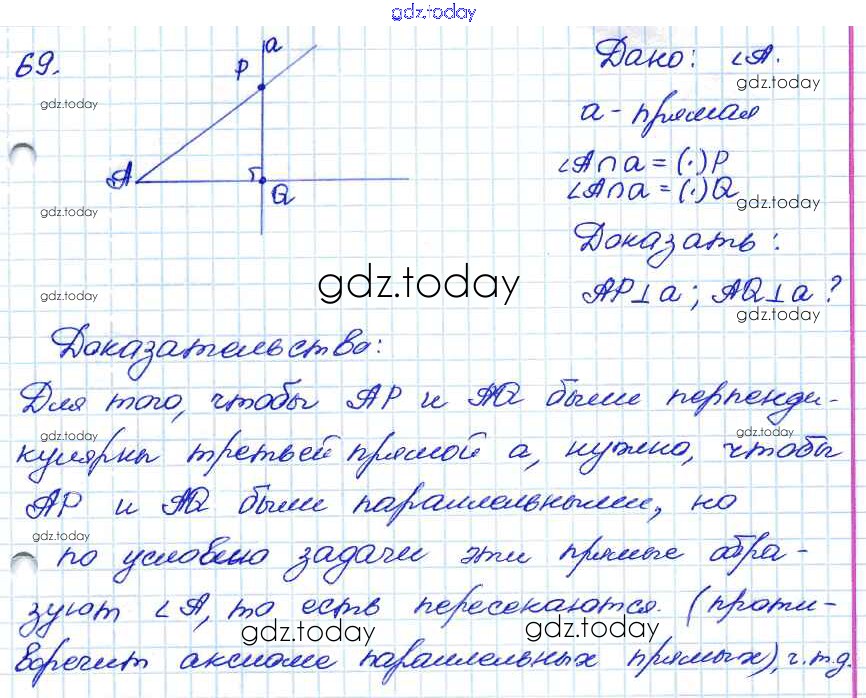 gdz.today
69.
a
P
Дано: ∠A.
gdz.today
gdz.today
a - прямая
∠A∩a = (·)P
A
∠A∩a = (·)Q
Q
gdz.today
gdz.today
Доказать:
gdz.today
gdz.today
AP⊥a; AQ⊥a?
gdz.today
Доказательство:
Для того, чтобы AP и AQ были перпенди-
gdz.today
gdz.today
кулярны третьей прямой a, нужно, чтобы
AP и AQ были параллельными, но
gdz.today
по условию задачи эти прямые обра-
зуют ∠A, то есть пересекаются. (проти-
gdz.today
gdz.today
воречит аксиоме параллельных прямых), ч.т.д.